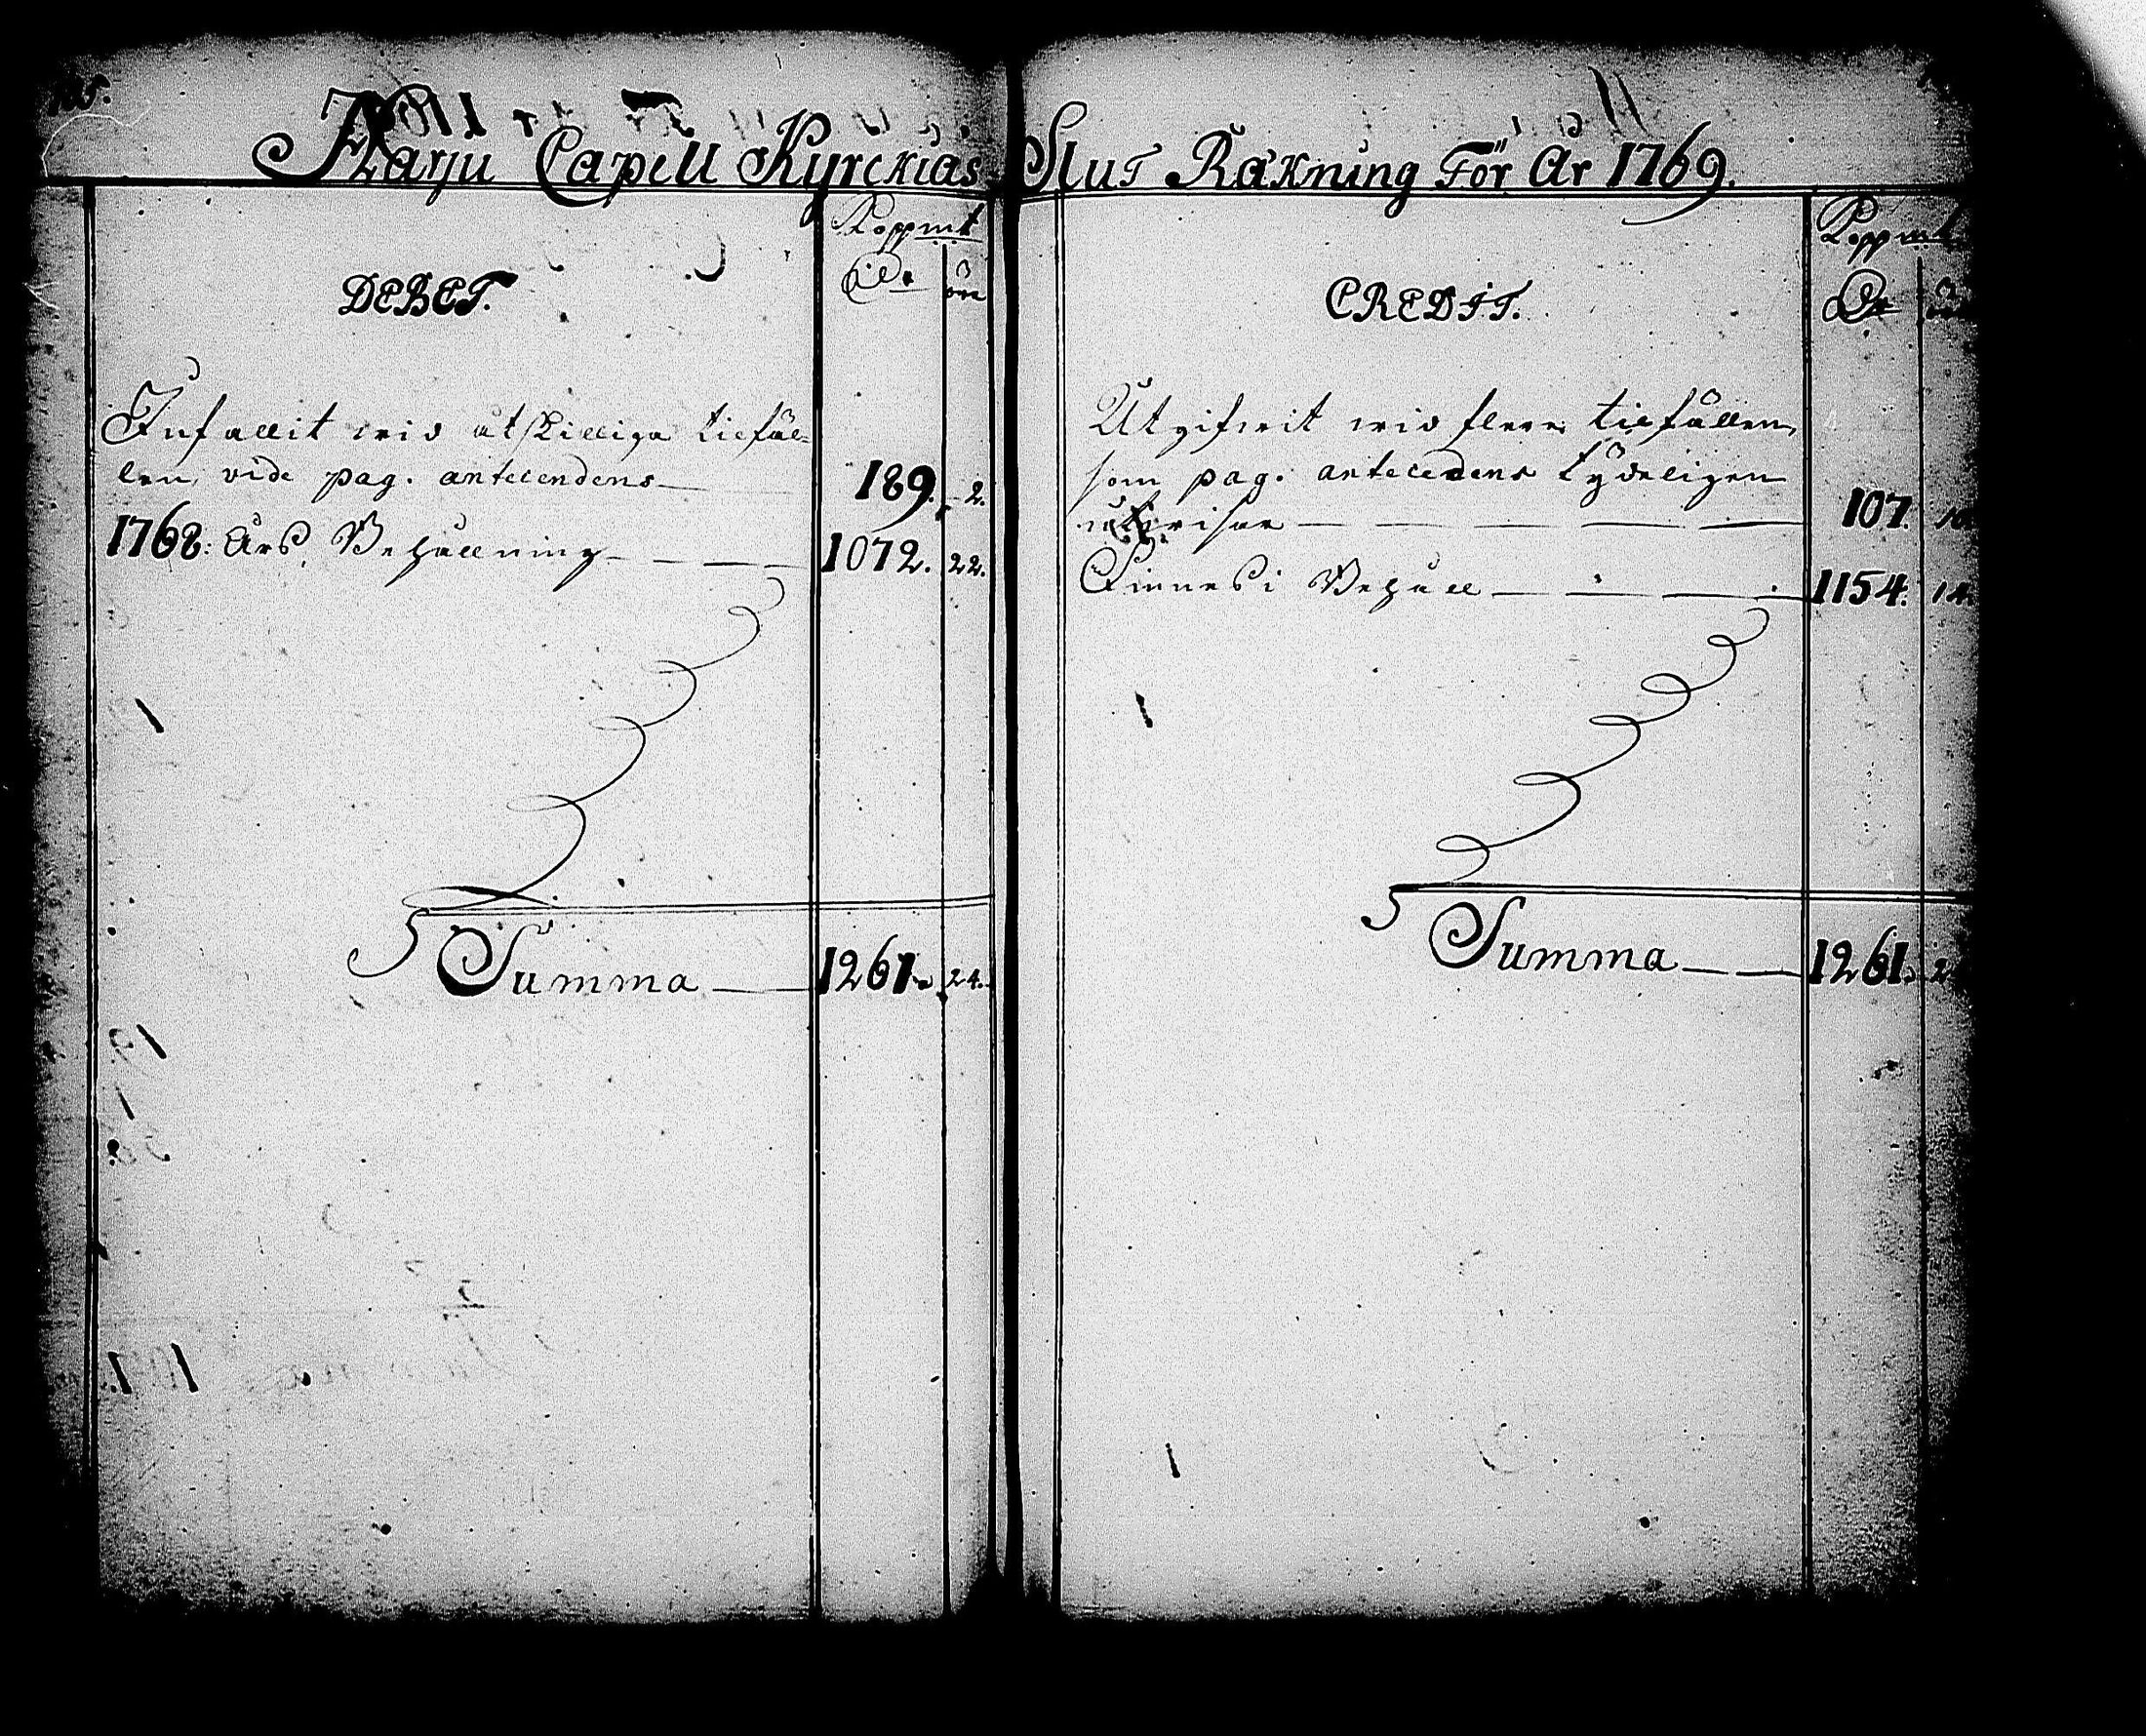 Karju Capell Kyrckias Slut Räkning För År 1769.
Koppmt
Dlr öre
DEBET.
Infallit wid åtskilliga tilfäl-
len, vide pag. antecendens 189. 2.
1768: Års Behållning 1072. 22.
Summa 1261. 24.
Koppmt
Dr
CREDIT.
Utgifwit wid flere tilfällen,
som pag. antecedens tydeligen
utwisar 107. 10
Finnes i Behåll 1154. 14.
Summa 1261. 2